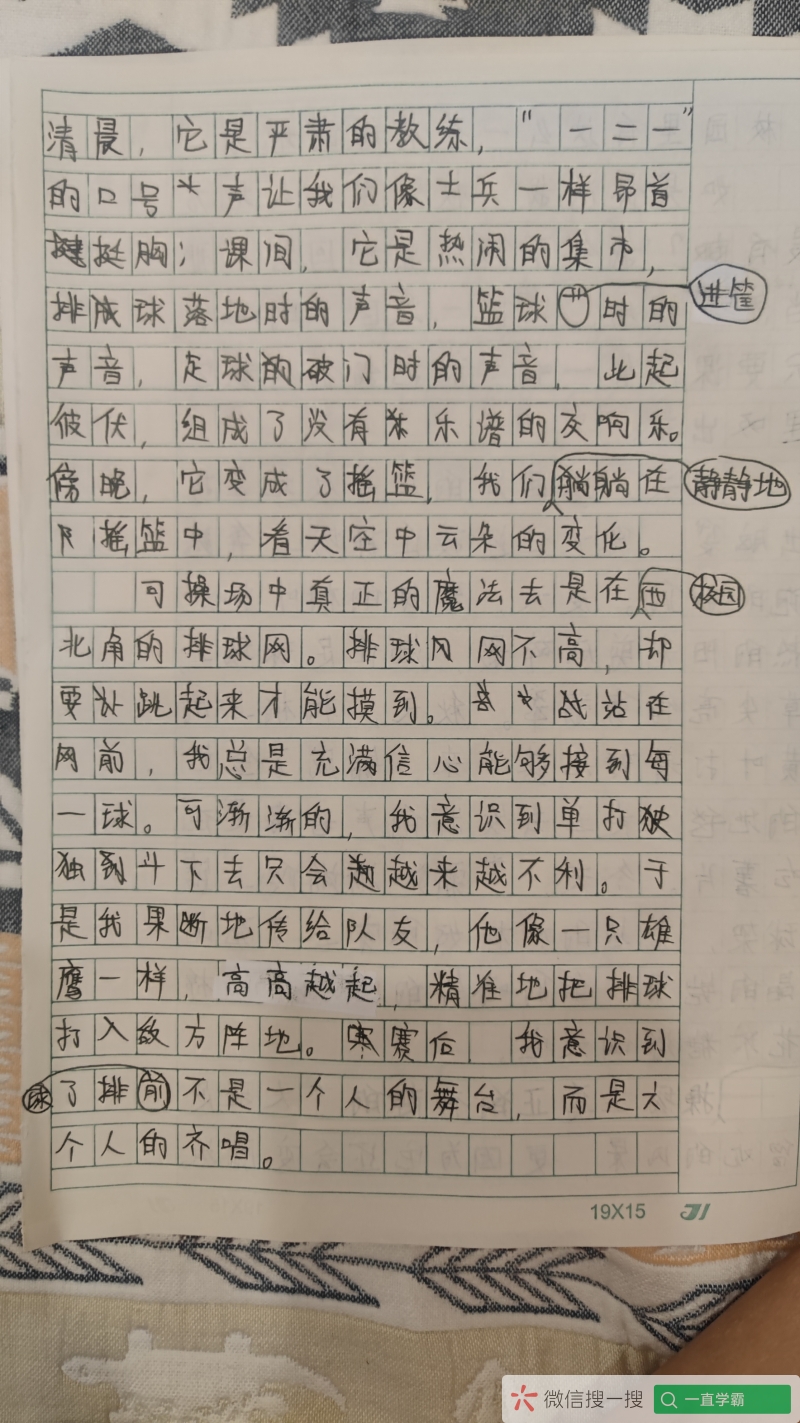 清晨，它是严肃的教练，“一二一”
的口号声让我们像士兵一样昂首
挺胸；课间，它是热闹的集市，
排球落地时的声音，篮球进筐时的
声音，足球破门时的声音，此起
彼伏，组成了没有乐谱的交响乐。
傍晚，它变成了摇篮，我们静静地躺在
摇篮中，看天空中云朵的变化。
可操场中真正的魔法去是在校园西
北角的排球网。排球网不高，却
要跳起来才能摸到。站在
网前，我总是充满信心能够接到每
一球。可渐渐的，我意识到单打独
斗下去只会越来越不利。于
是我果断地传给队友，他像一只雄
鹰一样，高高越起，精准地把排球
打入敌方阵地。赛后，我意识到
了排球不是一个人的舞台，而是六
个人的齐唱。
19X15
微信搜一搜
一直学霸